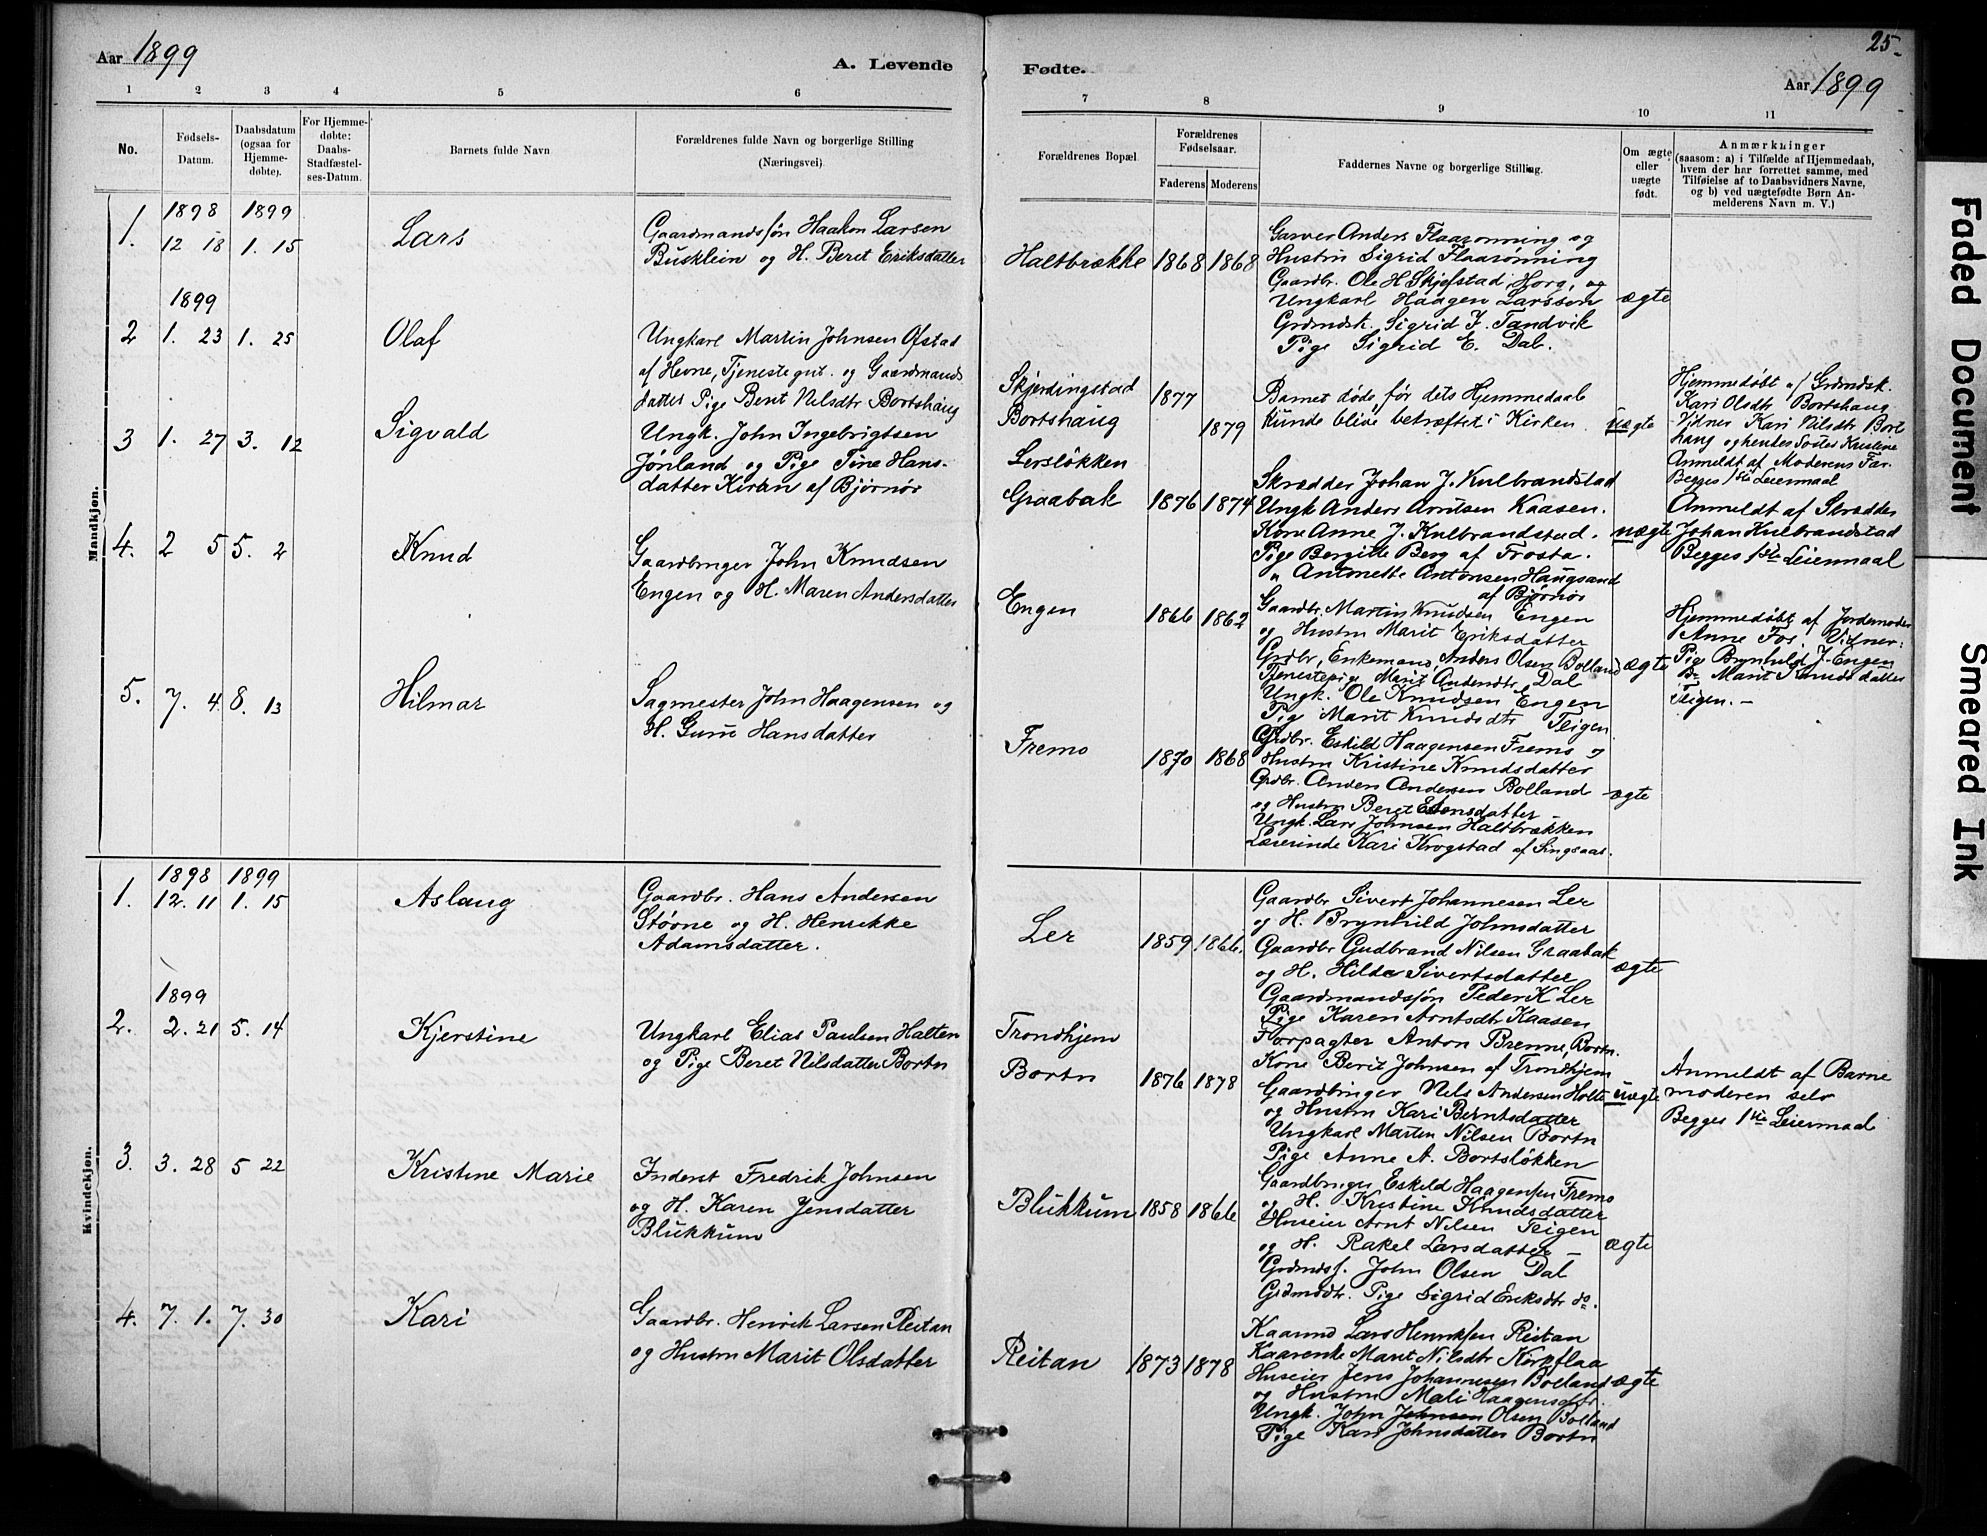 Aar 1899
A. Levende
1 2 3 4 5 6
No.
Fødsels-
Datum.
Daabsdatum
(ogsaa for
Hjemme-
døbte).
For Hjemme-
døbte:
Daabs-
Stadfæstel-
ses-Datum.
Barnets fulde Navn
Forældrenes fulde Navn og borgerlige Stilling
(Næringsvei)
Mandkjøn.
1898 1899
1. 12 18 1. 15 Lars
Gaardmandssøn Haakon Larsen
Busklein og H. Beret Eriksdatter
1899
2 1. 23 1. 25 Olaf
Ungkarl Martin Johnsen Ofstad
af Hevne, Tjenestegut. og Gaardmands
datter Pige Berit Nilsdtr Bortshaug
3 1. 27 3. 12 Sigvald
Ungk. John Ingebrigtsen
Jørsland og Pige Tine Hans-
datter Kiran af Bjørnør
4. 2 5 5. 2 Knud
Gaardbruger John Knudsen
Engen og H. Maren Andersdatter
5. 7. 4 8. 13 Hilmar
Sagmester John Haagensen og
H. Guru Hansdatter
Kvindekjøn.
1898 1899
1. 12. 11 1. 15 Aslaug
Gaardbr. Hans Andersen
Støvne og H. Henrikke
Adamsdatter.
1899
2. 2. 21 5. 14 Kjerstine
Ungkarl Elias Paulsen Halten
og Pige Beret Nilsdatter Bortn
3. 3. 28 5 22 Kristine Marie
Inderst Fredrik Johnsen
og H. Karen Jensdatter
Blukkum
4. 7. 1. 7. 30 Kari
Gaardbr. Henrik Larsen Reitan
og Hustru Marit Olsdatter
25.
Fødte.
Aar 1899
7 8 9 10 11
Forældrenes Bopæl.
Forældrenes
Fødselsaar.
Faderens Moderens
Faddernes Navne og borgerlige Stilling.
Om ægte
eller
uægte
født.
Anmærkninger
(saasom: a) i Tilfælde af Hjemmedaab,
hvem der har forrettet samme, med
Tilføielse af to Daabsvidners Navne,
og b) ved uægtefødte Børn An-
melderens Navn m. V.)
Haltbrække 1868 1868
Garver Anders Flaarønning og
Hustru Sigrid Flaarønning
Gaardbr. Ole H Skjefstad, Horg, og
Ungkarl Haagen Larssen ægte
Grdmdsk. Sigrid J. Tandvik
Pige Sigrid E. Dal.
Skjerdingstad 1877
Bortshaug 1879
Barnet døde før dets Hjemmedaab
kunde blive bekræftet i Kirken. uægte
Hjemmedøbt af Grdmdsk.
Kari Olsdtr Bortshaug
Vidner Kari Nilsdtr Bort
haug og hendes Søster Kristine
Anmeldt af Moderens Far.
Begges 1ste Leiermaal
Lersløkken
Graabak 1876 1874
Skrædder Johan J. Kulbrandstad
Ungk Anders Arntsen Kaasen.
Kone Anne J. Kulbrandstad. uægte
Pige Bergitte Berg af Frosta.
" Antonette Antonsen Haugsand
af Bjørnør
Anmeldt af Skrædder
Johan Kulbrandstad
Begges 1ste Leiermaal
Engen 1866 1862
Gaardbr. Martin Knudsen Engen
og Hustru Marit Eriksdatter
Grdbr, Enkemand, Anders Olsen Bolland ægte
Tjenestepige Marit Andersdtr Dal
Ungk. Ole Knudsen Engen
Pige Marit Knudsdtr Teigen
Hjemmedøbt af Jordemoder
Anne Fos. Vidner:
Pige Brynhild J. Engen
Marit Knudsdatter
Teigen. –
Fremo 1870 1868
Grdbr. Eskild Haagensen Fremo og
Hustru Kristine Knudsdatter
Grdbr. Anders Andersen Bolland ægte
og Hustru Beret Estensdatter
Ungk. Lars Johnsen Haltbrækken
Lærerinde Kari Krogstad af Singsaas.
Ler 1859 1866.
Gaardbr Sivert Johannesen Ler
og H. Brynhild Johnsdatter
Gaardbr Gudbrand Nilsen Graabak
og H. Hilda Sivertsdatter ægte
Gaardmandssøn Peder K Ler
Pige Karen Arntsdtr Kaasen
Trondhjem
Bortn 1876 1878
Forpagter Anton Brenne, Bortn.
Kone Berit Johnsen af Trondhjem
Gaardbruger Nels Andersen Holte uægte
og Hustru Kari Berntsdatter
Ungkarl Martin Nilsen Bortn
Pige Anne A. Bortsløkken
Anmeldt af Barne
moderen selv
Begges 1ste Leiermaal
Blukkum 1858 1866
Gaardbruger Eskild Haagensen Fremo
og H. Kristine Knudsdatter
Huseier Arnt Nilsen Teigen
og H. Rakel Larsdatter – ægte
Grdmdsf. John Olsen Dal
Grdmddtr. Pige Sigrid Eriksdtr do.
Reitan 1873 1878
Kaarmd Lars Henriksen Reitan
Kaarenke Marit Nilsdtr Kirkflaa
Huseier Jens Johannesen Bolland ægte
og Hustru Mali Haagensdtr
Ungk. John Johnsen Olsen Bolland
Pige Kari Johnsdatter Bortn
Faded Document
Smeared Ink